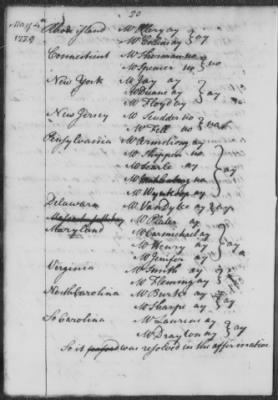 20
May 4th Rhode island Mr Ellery ay } ay
1779 Mr Collins ay
Connecticut Mr Sherman no } no
Mr Spencer no
New York Mr Jay ay } ay
Mr Duane ay
Mr Floyd ay
New Jersey Mr Scudder no } no
Mr Fell no
Pensylvania Mr Armstrong ay } ay
Mr Shippen no
Mr Searle ay
Mr no
Mr Wynkoop ay
Delaware Mr VanDyke ay } ay
Maryland Mr Plater ay } ay
Mr Carmichael ay
Mr Henry ay
Mr Jenifer ay
Virginia Mr Smith ay } ay
Mr Fleming ay
North Carolina Mr Burke ay } ay
Mr Sharpe ay
So Carolina Mr Laurens ay } ay
Mr Drayton ay
So it was resolved in the affirmative